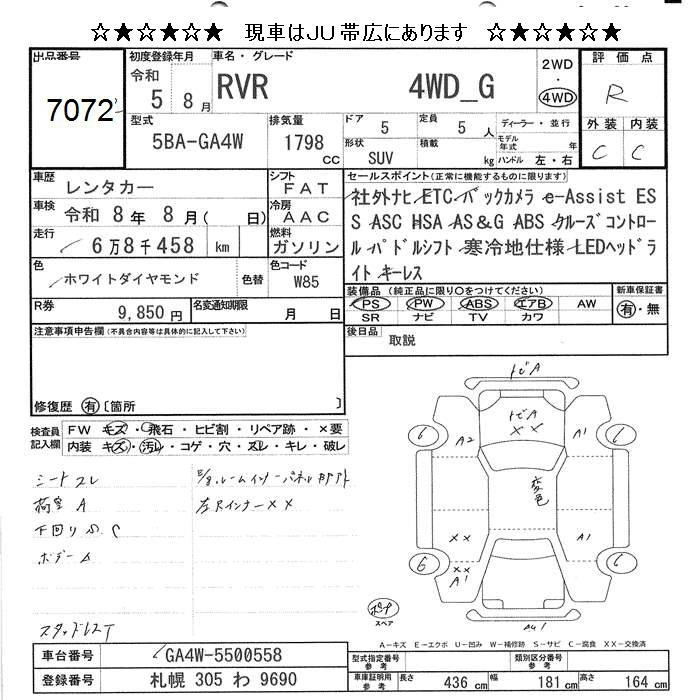 ☆★☆★☆★ 現車はJU帯広にあります ☆★☆★☆★
出品番号 7072
初度登録年月 令和 5 8月
車名・グレード RVR 4WD_G
2WD・4WD
評価点 R
外装 C 内装 C
型式 5BA-GA4W
排気量 1798 CC
ドア 5
定員 5 人
形状 SUV
積載 kg
ディーラー・並行
モデル年式 年
ハンドル 左・右
車歴 レンタカー
シフト FAT
車検 令和 8年 8月( 日)
冷房 AAC
走行 6万8千458 km
燃料 ガソリン
色 ホワイトダイヤモンド 色替
色コード W85
R券 9,850円
名変通知期限 月 日
セールスポイント(正常に機能するものに限ります)
社外ナビ ETC バックカメラ e-Assist ES
S ASC HSA AS&G ABS クルーズコントロー
ル パドルシフト 寒冷地仕様 LEDヘッドラ
イト キーレス
装備品(純正品に限り○をつけてください)
PS PW ABS エアB AW
SR ナビ TV カワ
新車保証書 有・無
後日品 取説
注意事項申告欄(不具合内容等は具体的に記入して下さい)
修復歴 有 〔箇所 〕
検査員記入欄
FW キズ・飛石・ヒビ割・リペア跡・×要
内装 キズ・汚レ・コゲ・穴・ズレ・キレ・破レ
シートコレ
荷室 A
下回り C
ボデー A
スタッドレスT
左Rインナー××
トビA
トビA
××
6
A2
A1
変色
××
A1
6
××
A1
スペア
A-キズ E-エクボ U-凹み W-補修跡 S-サビ C-腐食 XX-交換済
車台番号 GA4W-5500558
登録番号 札幌 305 わ 9690
型式指定番号 参考
類別区分番号 参考
車庫証明用 参考 長さ 436 cm 幅 181 cm 高さ 164 cm